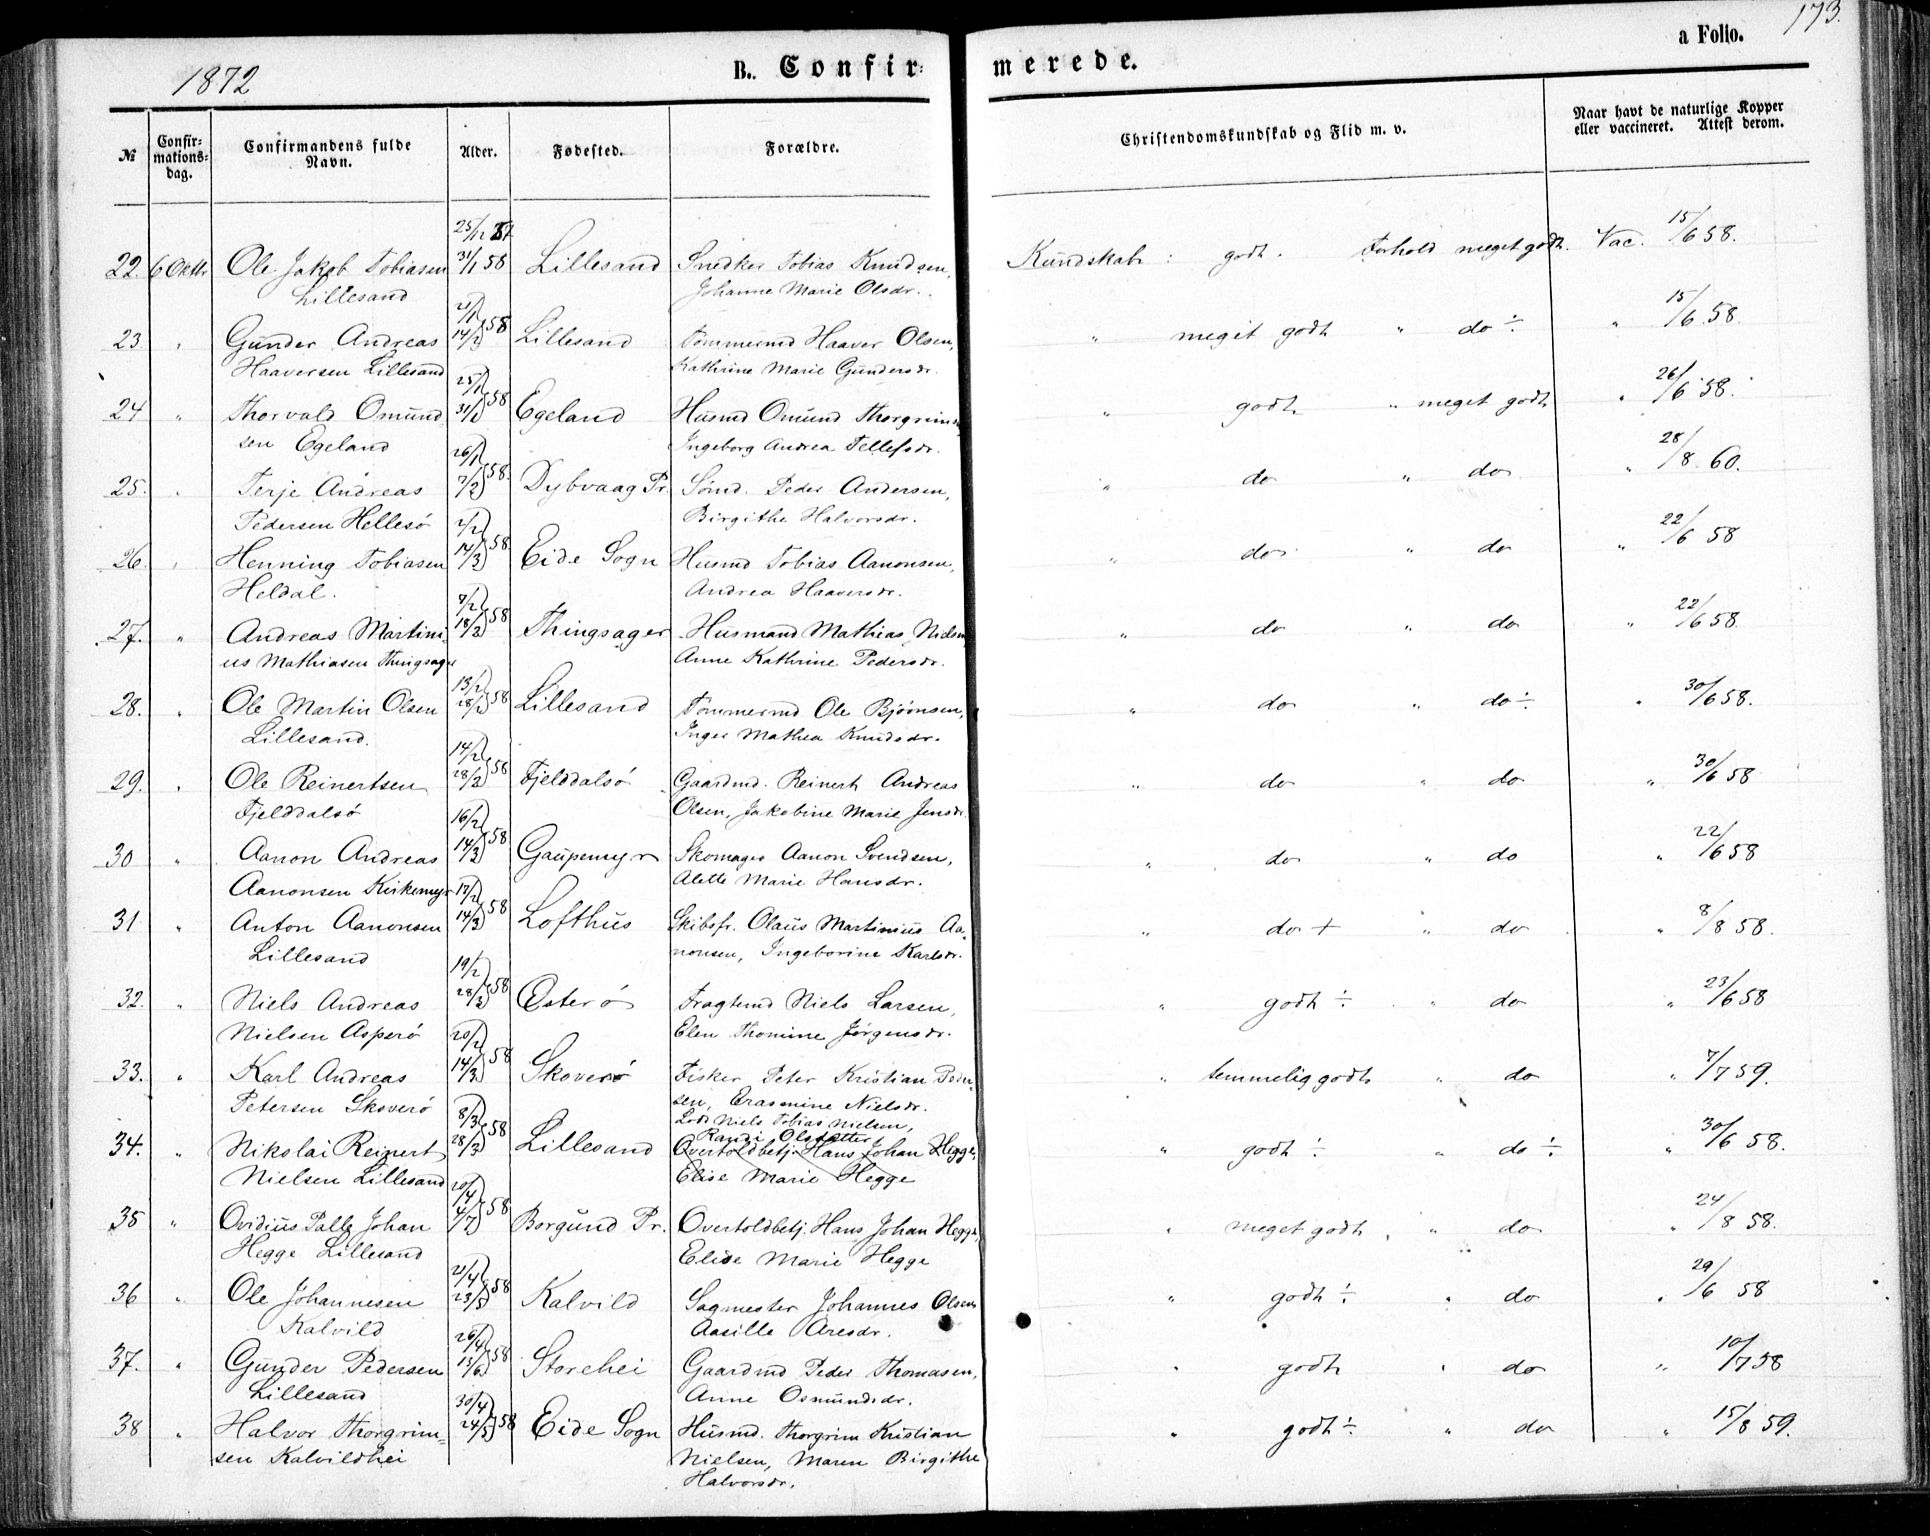 1872
B. Confirmerede.
a Folio. 173.
№ Confirmationsdag. Confirmandens fulde Navn. Alder. Fødested. Forældre. Christendomskundskab og Flid m. v. Naar havt de naturlige Kopper eller vaccineret. Attest derom.
25/12 57
22 6 Oktb Ole Jakob Tobiasen 31/1 58 Lillesand Snedker Tobias Knudsen, Kundskab: godt. Forhold meget godt. Vac. 15/6 58.
Lillesand Johanne Marie Olsdr.
23 " Gunder Andreas 21/1 14/2 58 Lillesand Tømmermd Haaver Olsen, " meget godt " do ÷ " 15/6 58.
Haaversen Lillesand Kathrine Marie Gundersdr.
24 " Thorvald Omund 25/1 58 Egeland Husmd Omund Thorgrims. " godt " meget godt " 26/6 58.
sen Egeland Ingeborg Andrea Tellefsdr.
25. " Terje Andreas 26/1 7/2 58. Dybvaag Pr. Sømd. Peder Andersen, " do " do " 28/8 60.
Pedersen Hellesö Birgithe Halvorsdr.
26 " Henning Tobiasen 2/2 14/3 58. Eide Sogn Husmd Tobias Aanonsen, " do " do " 22/6 58
Heldal. Andrea Haaversdr.
27. " Andreas Martini- 7/2 58 Thingsager Husmand Mathias Nielsen, " do " do " 22/6 58.
us Mathiasen Thingsager Anne Kathrine Pedersdr.
28. " Ole Martin Olsen 13/2 28/2 58 Lillesand Tømmermd Ole Bjørnsen, " do " do ÷ " 30/6 58.
Lillesand. Inger Mathea Knudsdr.
29. " Ole Reinertsen 14/2 58 Fjelddalsö Gaardmd. Reinert Andreas " do " do " 30/6 58
Fjelddalsö Olsen, Jakobine Marie Jensdr.
30 " Aanon Andreas 16/2 14/3 58 Gaupemyr Skomager Aanon Svendsen, " do " do " 22/6 58
Aanonsen Kirkemyr Alette Marie Hansdr.
31 " Anton Aanonsen 17/2 14/3 58 Lofthus Skibsfr. Olaus Martinius Aa- " do + " do " 8/8 58.
Lillesand nonsen, Ingeborine Karlsdr.
32. " Niels Andreas 19/2 28/3 58 Österö Fragtemd Niels Larsen, " godt ÷ " do " 23/6 58
Nielsen Asperö Elen Thomine Jørgensdr.
33. " Karl Andreas 20/2 14/3 58 Skoverö Fisker Peter Kristian Peder- " temmelig godt " do " 7/7 59.
Petersen Skoverö sen, Erasmine Nielsdr.
Lods Niels Tobias Nielsen,
Randi Olsdatter
34. " Nikolai Reinert 8/3 28/3 58 Lillesand Overtoldbetj. Hans Johan Hegge, " godt ÷ " do ÷ " 30/6 58.
Nielsen Lillesand Elise Marie Hegge
35 " Ovidius Palle Johan 20/4 4/7 58 Borgund Pr. Overtoldbetj. Hans Johan Hegge, " meget godt " do " 24/8 58.
Hegge Lillesand Elise Marie Hegge
36 " Ole Johannesen 21/4 23/5 58 Kalvild Sagmester Johannes Olsen " godt ÷ " do " 29/6 58
Kalvild Aasille Aresdr.
37. " Gunder Pedersen 26/4 13/6 58 Storehei Gaardmd Peder Thomasen, " godt " do " 10/7 58
Lillesand Anne Osmundsdr.
38 " Halvor Thorgrim- 30/4 24/5 58 Eide Sogn Husmd. Thorgrim Kristian " godt ÷ " do " 15/8 59.
sen Kalvildhei Nielsen, Maren Birgithe
Halvorsdr.